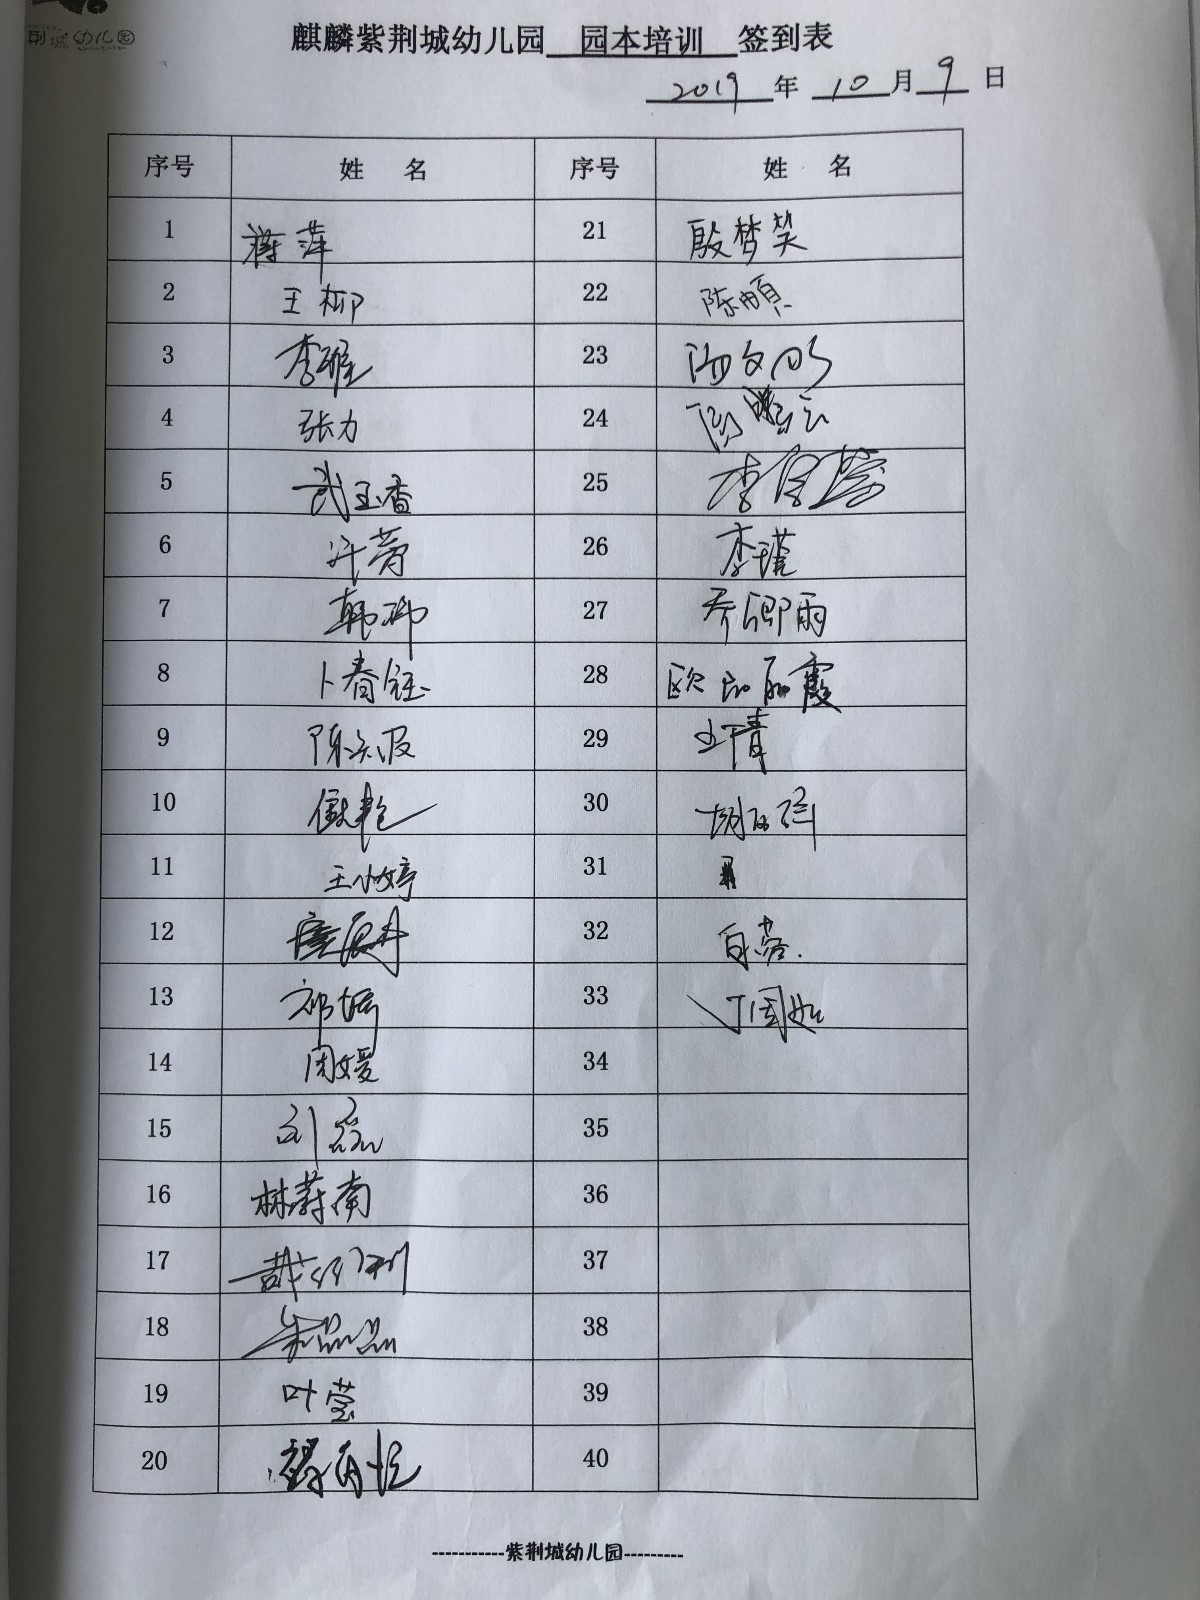 荆城幼儿园
麒麟紫荆城幼儿园 园本培训 签到表
2019 年 10 月 9 日
序号 姓 名 序号 姓 名
1 蒋萍 21 殷梦笑
2 王柳 22 陈
3 李雅 23 汤文明
4 张力 24
5 武玉香 25 李
6 许蓉 26 李瑾
7 韩娜 27 乔卿雨
8 卜春钰 28 欧阳丽霞
9 陈 29 王倩
10 30 胡
11 王小婷 31
12 32 白蓉.
13 祁娟 33 丁国
14 周媛 34
15 刘蕊 35
16 林蔚南 36
17 37
18 朱晶晶 38
19 叶莹 39
20 40
紫荆城幼儿园